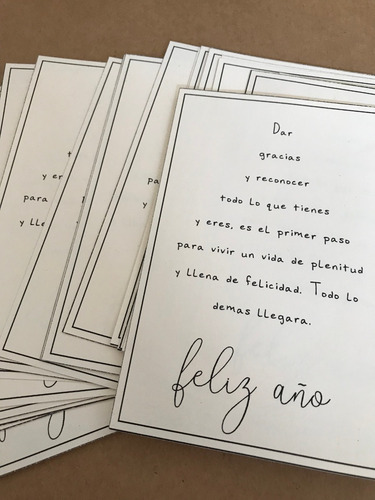 Dar
gracias
y reconocer
todo lo que tienes
y eres, es el primer paso
para vivir un vida de plenitud
y llena de felicidad. Todo lo
demas llegara.
feliz año
y er
para
y lle
pa
y